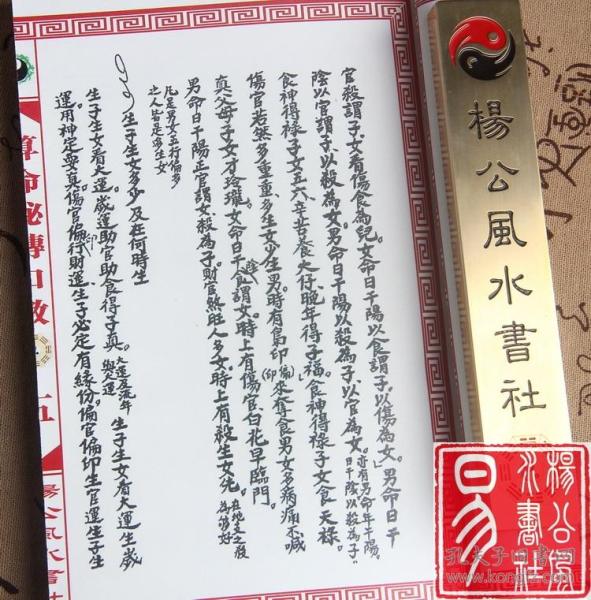 官殺謂子女看傷食為兒女命日干陽以食謂子以傷為女。男命日干
陰以官謂子以殺為女。男命日干陽以殺為子以官為女。亦有男命年干陽，日干陰以殺為子
食神得祿子女五六、辛苦養大仔晚年得子福。食神得祿子女食天祿。
傷官若然多重重多生女少生男時有梟印(偏印)來奪食男女多病痛不喊
真父母子女才玲瓏。女命日干陰食謂女時上有傷官白花早臨門。
男命日干陽正官謂女殺為子財官煞旺人多女時上有殺生女先。在他生之後為好
凡是男女五行偏多
之人皆是多生女
92 生子生女多少及在何時生
生子生女看大運。歲運助官助食得子真。大運及流年與大運 生子生女看大運生歲
運用神定要真傷官偏印偏行財運生子必定有緣份。偏官偏印生官運生子生
算命秘傳口教
五
楊公風水書社
楊公風水書社
楊公風水書社
易
孔夫子旧书网
www.kongfz.com